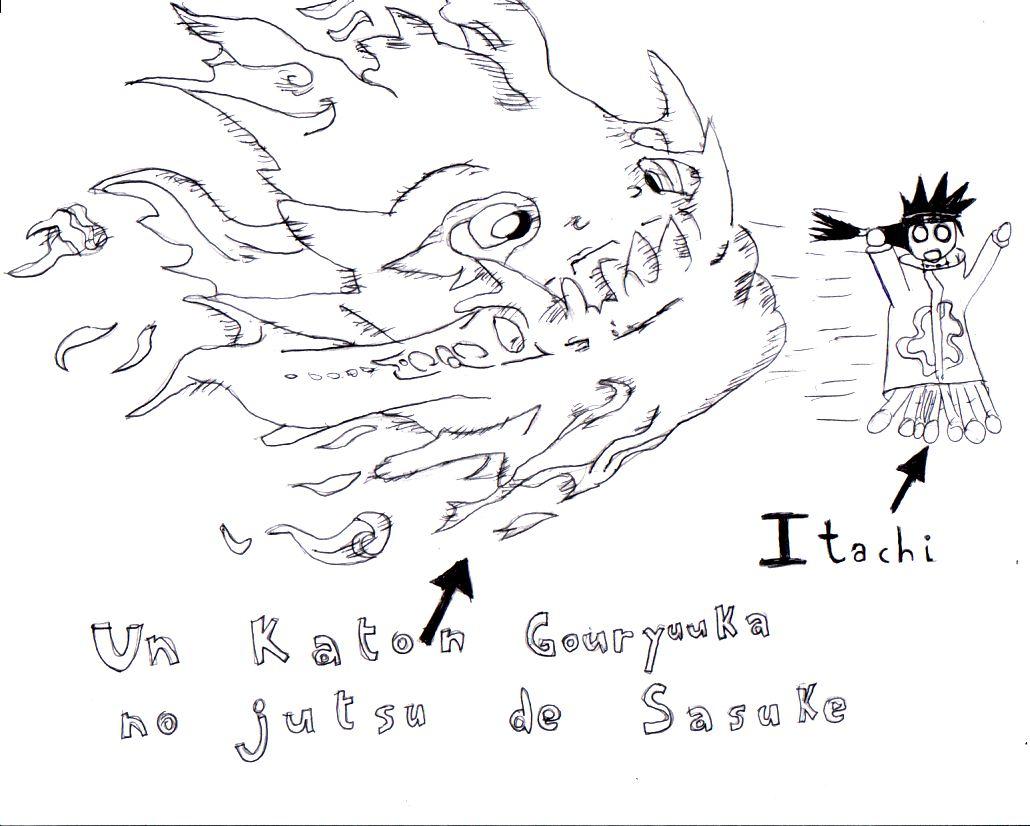 Itachi
Un Katon Gouryuuka
no jutsu de Sasuke